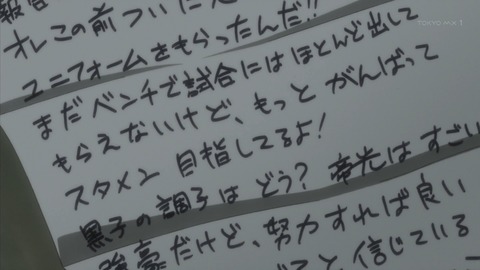 TOKYO MX 1
オレこの前つい
ユニフォームをもらったんだ!!
まだベンチで試合にはほとんど出して
もらえないけど、もっと がんばって
スタメン 目指してるよ!
黒子の調子は どう? 帝光は すごい
強豪だけど、努力すれば良い
と信じている